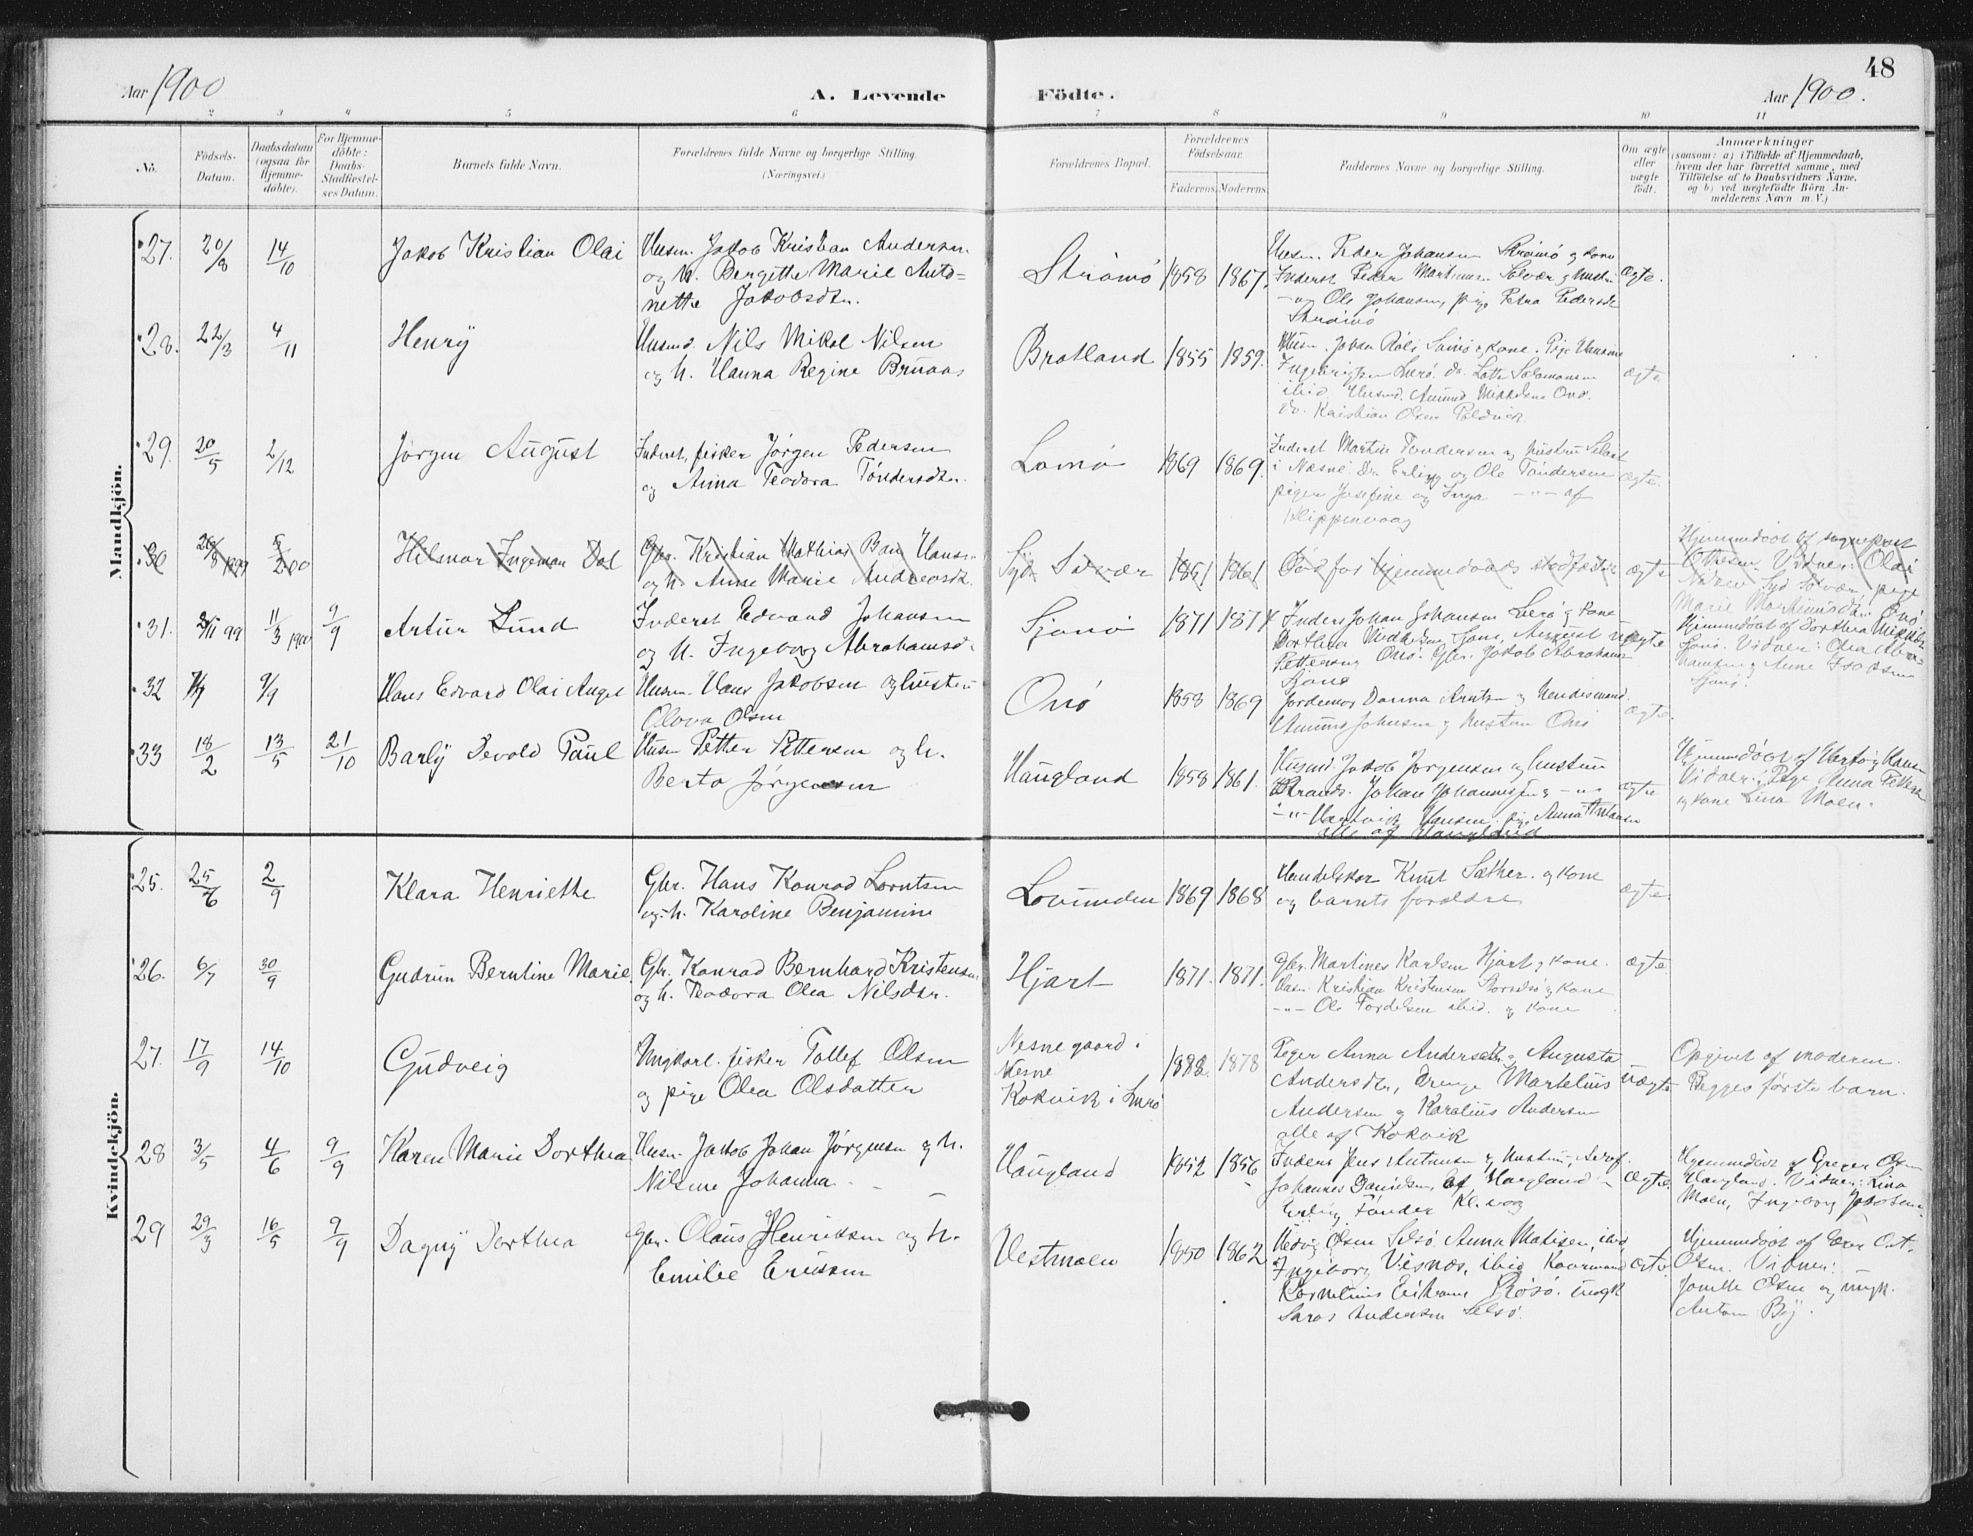 48
Aar 1900
A. Levende Födte.
Aar 1900.
2 3 4 5 6 7 8 9 10 11
No.
Födsels-Datum.
Daabsdatum (ogsaa for Hjemmedöbte).
For Hjemmedöbte: Daabs-Stadfæstelses Datum.
Barnets fulde Navn.
Forældrenes fulde Navne og borgerlige Stilling. (Næringsvei.)
Forældrenes Bopæl.
Forældrenes Födselsaar.
Faderens. Moderens.
Faddernes Navne og borgerlige Stilling.
Om ægte eller uægte födt.
Anmærkninger
(saasom: a) i Tilfælde af Hjemmedaab,
hvem der har forrettet samme, med
Tilföielse af to Daabsvidners Navne,
og b) ved uægtefödte Börn An-
melderens Navn m. V.)
Mandkjön.
27. 20/8 14/10 Jakob Kristian Olai
Husm. Jakob Kristian Andersen
og h. Bergitte Marie Anto-
nette Jakobsdtr.
Strömö 1858 1867.
Husm. Peder Johansen Strömö og kone
Inderst Peder Martinsen Solvær og hustr.
Ole Johansen, pige Petra Pedersdtr
Strömö
ægte.
28. 22/3 4/11 Henrÿ
Husmd. Nils Mikal Nilsen
og h. Hanna Regine Bruaas
Bratland 1855 1859.
Husm. Johan
Lurö. Lotte Salamonsen
ibid Husmd. Amund Mikkelsen Onö.
do. Kristian Olsen
ægte
29. 20/5 2/12 Jörgen August
Inderst, fisker Jörgen Pedersen
og Anna Teodora Töndersdtr.
Lomö 1869 1869.
Inderst Martin Tondersen og hustru
i Næsne Erling og Ole Töndersen
piger Josefine og Inga -"- af
Klippenvaag
ægte.
30 26/8 1899 5/2 00 Helmar Ingeman Dal
Gbr. Kristian Mathias Bang Hans
og h. Anna Marie Andreasdtr.
Syd Solvær 1851 1861
Död för hjemmedaabs stadfæstelse
ægte
Hjemmedöbt af sogneprest
Ottesen. Vidner: Olai
Syd Solvær, pige
Marie Martinusdtr. Onö
31. 2/11 99 11/3 1900 9/9 Artur Lund
Inderst Edvard Johansen
og h. Ingeborg Abrahamsd.
Sjonö 1871 1874
Inders Johan Johansen Lurö og kone
Dorthea Mikkelsen August
Pettersen Onö. Gbr. Jakob Abrahams
Sjonö
ægte
Hjemmedöbt af Dorthea Mikkels
Sjonö. Vidner: Olea Abra-
hamsen og Anne Isaksen
Sjonö.
32 7/7 9/9 Hans Edvard Olai Angel
Husm. Hans Jakobsen og hustru
Olava Olsen
Onö 1858 1869
Jordemor Danna Arntsen og
Amund Johansen og hustru Onö
ægte
33 18/2 13/5 21/10 Barlÿ Sevald Paul
Husm Petter Pettersen og h.
Berta Jörgensen
Haugland 1858 1861.
Husmd. Jakob Jörgensen og hustru
Johan Johannesen og -"-
-"- Hartvik Hansen, pige Anna
alle af Haugland
ægte
Hjemmedöbt af Hertog Hansen
Vidner: Pige Anna Petters
og kone Lina Moen.
Kvindekjön.
25. 25/6 2/9 Klara Henriette
Gbr. Hans Konrad Lorntsen
og h. Karoline Benjamine
Lovunden 1869 1868
Handelskar Knut Sæther. og kone
og barnets forældre
ægte
26. 6/7 30/9 Gudrun Berntine Marie
Gbr. Konrad Bernhard Kristensen
og h. Teodora Olea Nilsdtr.
Hjart 1871. 1871.
Gbr. Martines Karlsen Hjart og kone.
Husm. Kristian Kristensen Storselsö og kone
-"- Ole Tordelsen ibid. og kone
ægte
27. 17/9 14/10 Gudveig
Ungkarl. fisker Tollef Olsen
og pige Olea Olsdatter
Nesnegaard i
Nesne
Kokvik i Lurö
1882. 1878
Piger Anna Andersdtr. og Augusta
Andersdtr., Drenge Martelius
Andersen og Karolius Andersen
alle af Kokvik
uægte
Opgivet af moderen.
Begges förste barn.
28 3/5 4/6 9/9 Karen Marie Dorthea
Husm. Jakob Johan Jörgensen og h.
Nilsine Johanna
Haugland 1852 1856
Inders Jens Antonsen og hustru,
Johannes Danielsen, af Haugland
Erling Tönder Kl. vaag
ægte.
Hjemmedöbt af Greger Olsen
Haugland. Vidner: Lina
Moen, Ingeborg Jakobsen
29 29/3 16/5 9/9 Dagnÿ Dorthea
Gbr. Olaus Henriksen og h.
Emilie Eriksen
Vestmoen 1850 1862
Hedvig Olsen Selsö Anna Matisen, ibid
Ingeborg Visnæs, ibid
Kornelius Eriksen
Andersen Selsö.
ægte
Hjemmedöbt af
Olsen. Vidner:
Jonette Olsen og ungk.
Anton Böÿ.